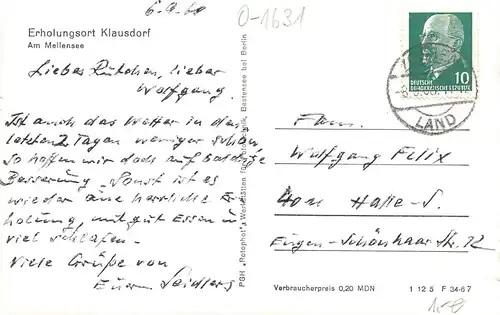 6.9.68
O-1631
Erholungsort Klausdorf
Am Mellensee
Liebes Rütchen, lieber
Wolfgang.
Ist auch das Wetter in den
letzten Tagen weniger schön,
so hoffen wir doch auf baldige
Besserung. Sonst ist es
wieder eine herrliche Er-
holung, mit gut Essen u.
viel schlafen.-
Viele Grüße von
Euern Seidlers
PGH „Rotophot“ Werkstätten für Bestensee bei Berlin
DEUTSCHE
DEMOKRATISCHE REPUBLIK
10
LAND
Fam.
Wolfgang Felix
401 Halle-S.
Eugen-Schönhaar Str. 12
Verbraucherpreis 0,20 MDN
1 12 5 F 34-67